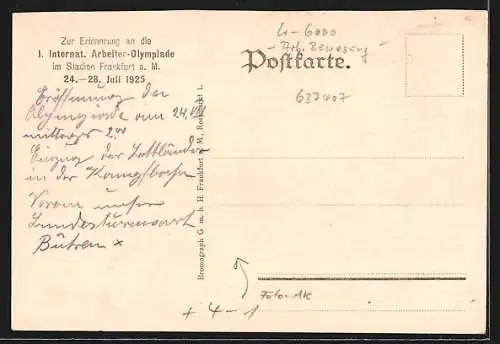 Zur Erinnerung an die
I. Internat. Arbeiter-Olympiade
im Stadion Frankfurt a. M.
24.—28. Juli 1925
Eröffnung der
Olympiade am 24. VII
mittags 2.00
Einzug der Lettländer
in der Kampfbahn
Voran unser
Landesturnwart
Bühren x
Bromograph G. m. b. H. Frankfurt a. M., Rossmarkt 1.
4-6000
- Arb. Bewegung
Postkarte.
637407
Foto-AK
+ 4-1